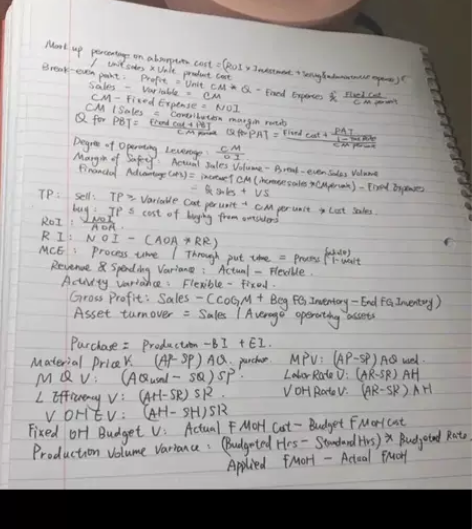 Mark up percentage on absorption cost = (ROI × Investment + Selling & administrative expenses) (
/ Unit sales × Unit product cost
Break-even point: Profit = Unit CM * Q - Fixed Expenses & Fixed Cost / CM per unit
Sales - Variable = CM
CM - Fixed Expense = NOI
CM / Sales = Contribution margin ratio
Q for PBT = Fixed cost + PBT / CM per unit Q for PAT = Fixed cost + PAT / 1 - tax rate / CM per unit
Degree of Operating Leverage: CM / OI
Margin of Safety: Actual Sales Volume - Break-even Sales Volume
Financial Advantage = increase CM (increase sales × CM per unit) - Fixed Expenses
Sales + VS
TP: Sell: TP ≥ Variable Cost per unit + CM per unit * Lost Sales
buy: TP ≤ cost of buying from outsiders
ROI: NOI / AOA
RI: NOI - (AOA * RR)
MCE: Process time / Through put time = process
Revenue & Spending Variance: Actual - Flexible.
Activity variance: Flexible - Fixed.
Gross Profit: Sales - (COGM + Beg FG Inventory - End FG Inventory)
Asset turnover = Sales / Average operating assets
Purchase = Production - BI + EI.
Material Price V: (AP-SP) AQ purchase MPV: (AP-SP) AQ used.
M Q V: (AQ used - SQ) SP Labor Rate V: (AR-SR) AH
L Efficiency V: (AH-SR) SR V OH Rate V: (AR-SR) AH
V OH E V: (AH-SH) SR
Fixed OH Budget V: Actual FMOH Cost - Budget FMOH Cost
Production Volume Variance: (Budgeted Hrs - Standard Hrs) * Budgeted Rate.
Applied FMOH - Actual FMOH